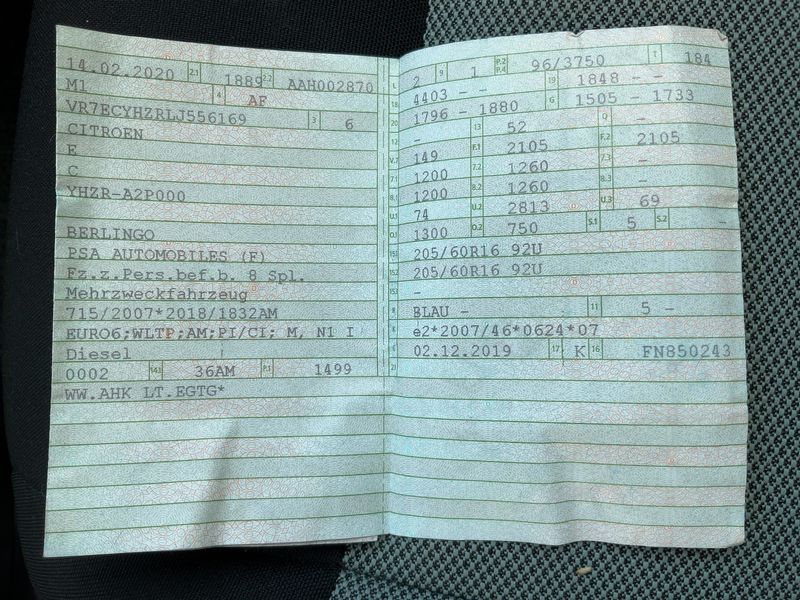 14.02.2020 2.1 1889 2.2 AAH002870
M1 4 AF
VR7ECYHZRLJ556169 3 6
CITROEN
E
C
YHZR-A2P000
BERLINGO
PSA AUTOMOBILES (F)
Fz.z.Pers.bef.b. 8 Spl.
Mehrzweckfahrzeug
715/2007*2018/1832AM
EURO6;WLTP;AM;PI/CI; M, N1 I
Diesel
0002 14.1 36AM P.1 1499
WW.AHK LT.EGTG*
L 2 9 1 P.2 P.4 96/3750 T 184
18 4403 - - 19 1848 - -
20 1796 - 1880 G 1505 - 1733
12 - 13 52 Q -
V.7 149 F.1 2105 F.2 2105
7.1 1200 7.2 1260 7.3 -
8.1 1200 8.2 1260 8.3 -
U.1 74 U.2 2813 U.3 69
O.1 1300 O.2 750 S.1 5 S.2 -
15.1 205/60R16 92U
15.2 205/60R16 92U
15.3 -
R BLAU - 11 5 -
K e2*2007/46*0624*07
6 02.12.2019 17 K 16 FN850243
21